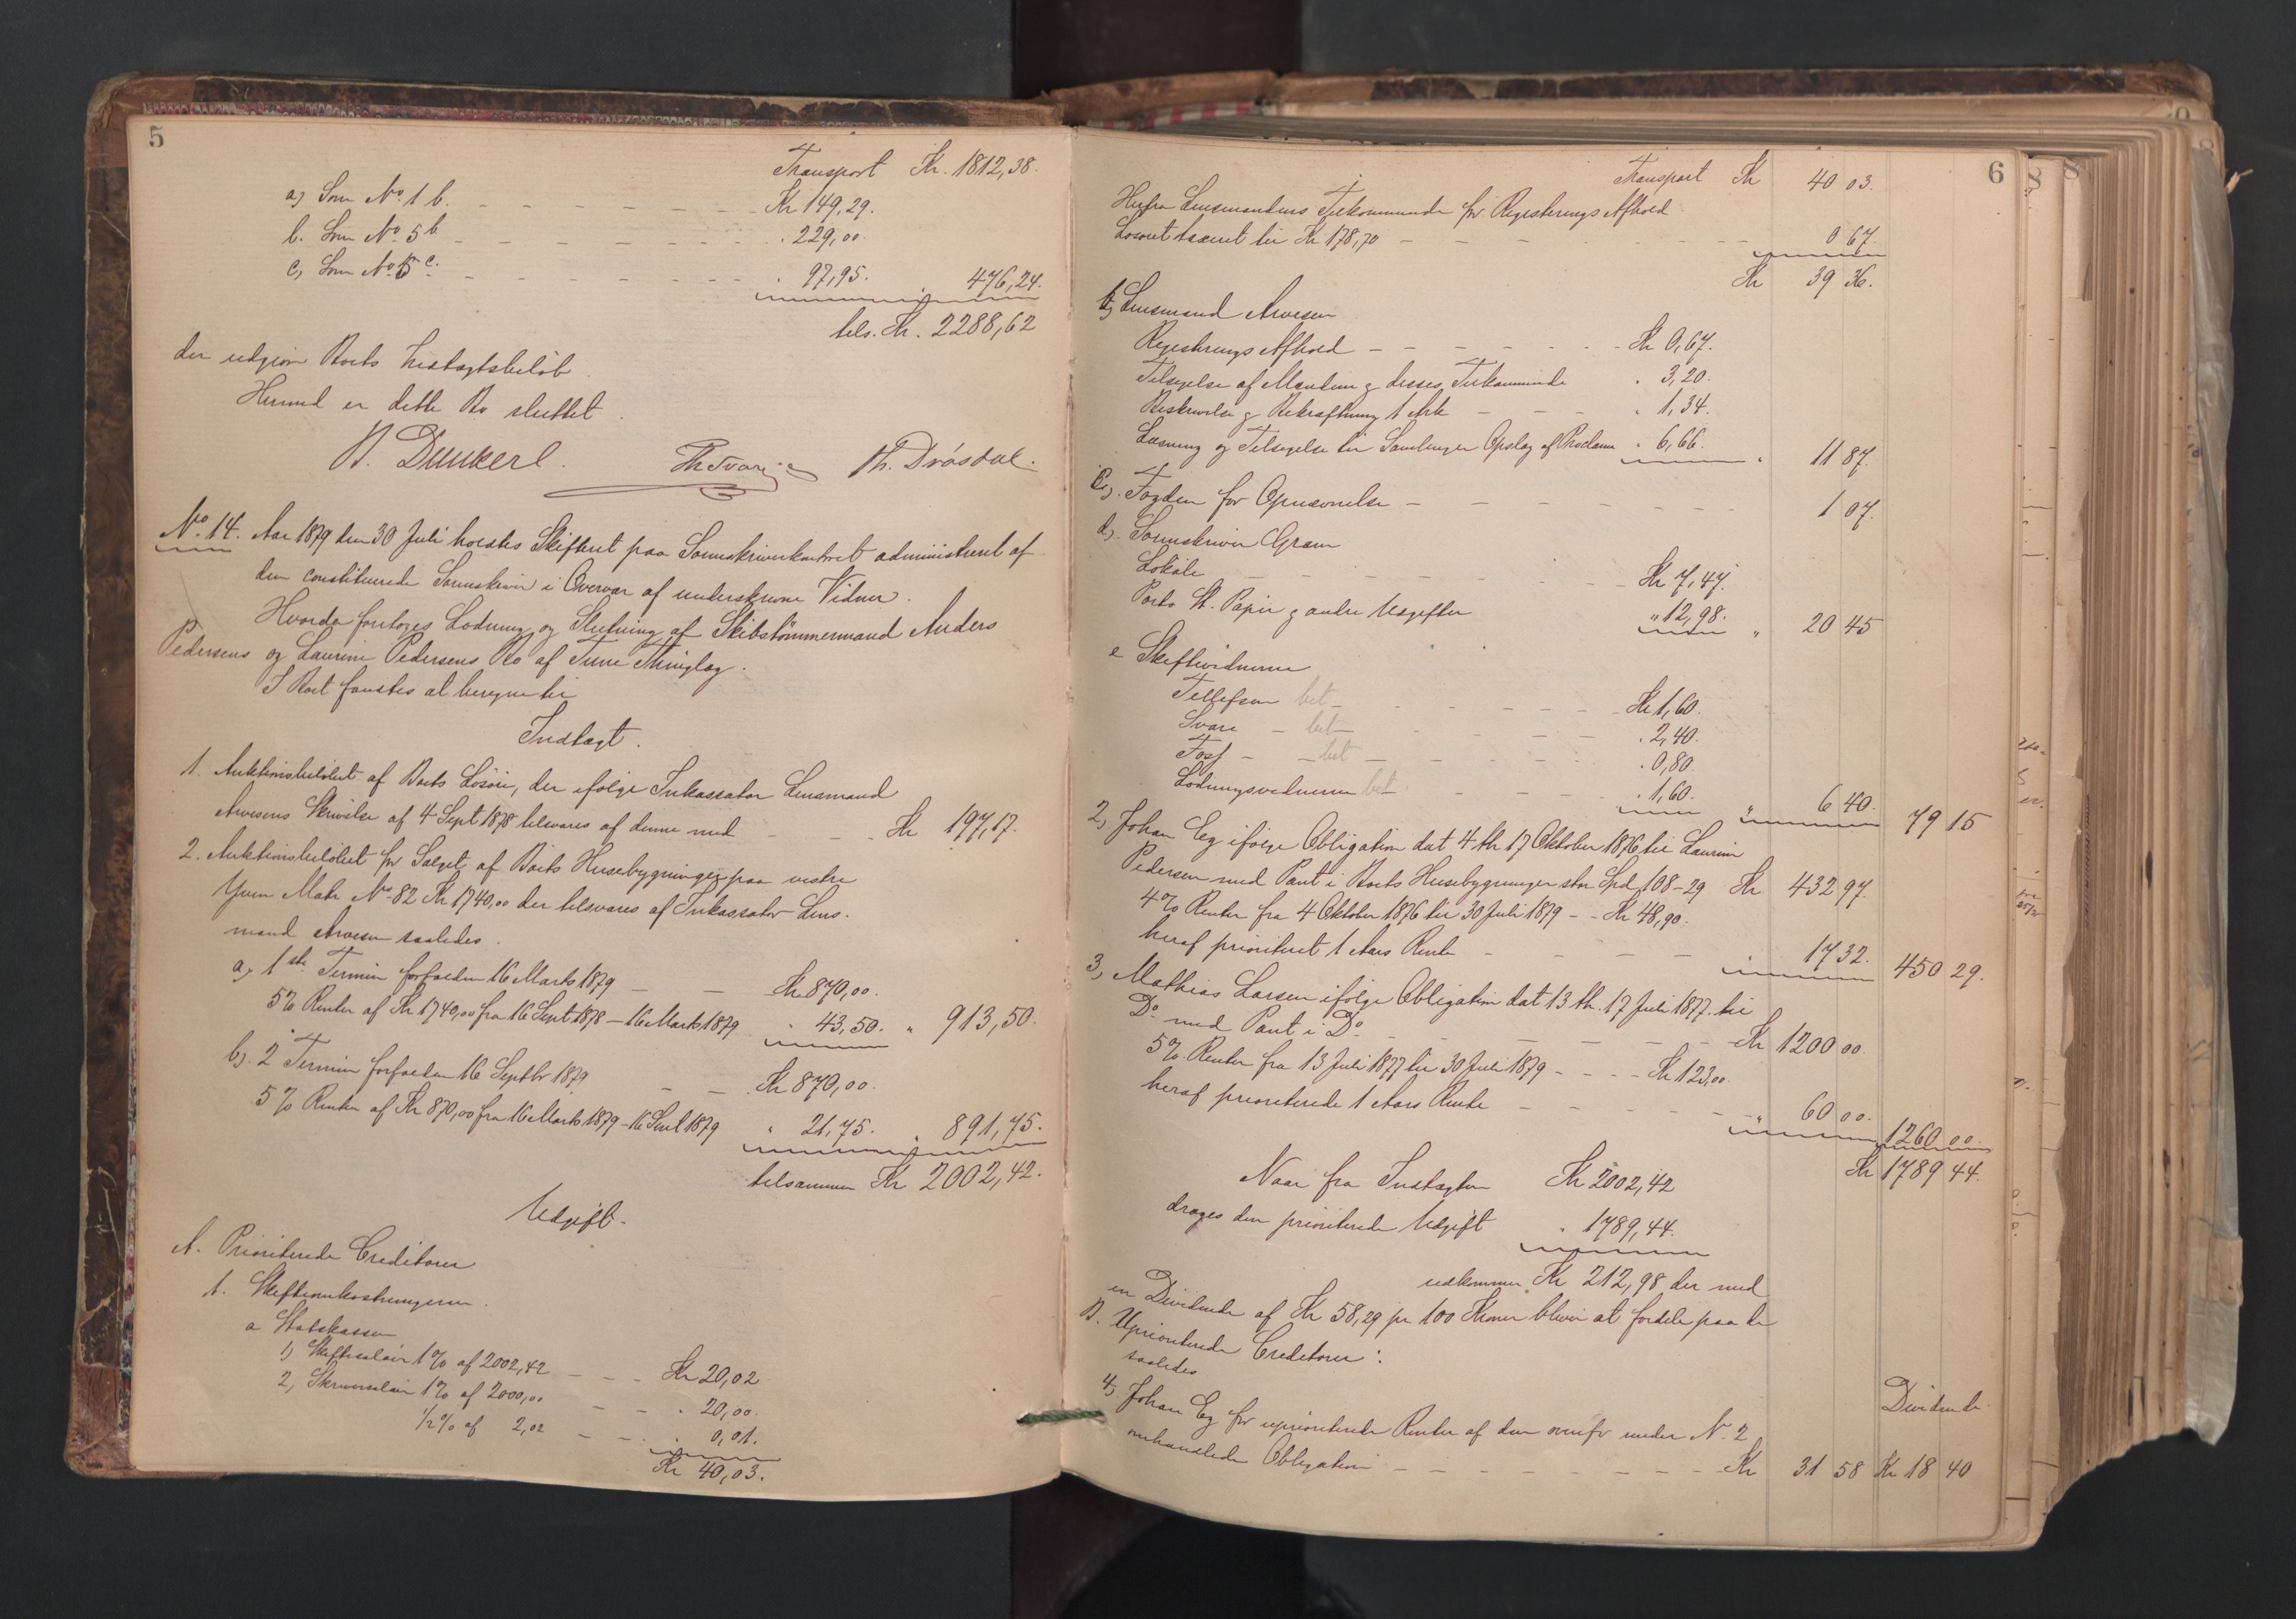 5
Transport Kr. 1812,38.
a) Som No 1 b. Kr 149,29.
b. Som No 5 b 229,00.
c, Som No 5 c. 97,95. 476,24.
tils. Kr. 2288,62
der udgjør Boets Indtægtsbeløb.
Hermed er dette Bo sluttet.
No. 14. Aar 1879 den 30 Juli holdtes Skifteret paa Sorenskriverkontoret administreret af
den constituerede Sorenskriver i Overvær af underskrevne Vidner.
Hvorda foretoges Lodning og Slutning af Skibstømmermand Anders
Pedersens og Laurine Pedersens Bo af Tune Thinglag.
I Boet fandtes at beregne til
Indtægt.
1. Auktionsbeløbet af Boets Løsøre, der ifølge Inkassator Lensmand
Arvesens Skrivelse af 4 Sept 1878 tilsvares af denne med Kr 197,17.
2. Auktionsbeløbet for Salget af Boets Husebygninger paa vestre
Matr No 82 Kr 1740,00 der tilsvares af Inkassator Lens-
mand Arvesen saaledes.
a, 1ste Termin forfalden 16 Marts 1879 Kr 870,00.
5% Renter af Kr 1740,00 fra 16 Sept 1878 - 16 Marts 1879 43,50. " 913,50.
b). 2 Termin forfalden 16 Septbr 1879 Kr 870,00.
5% Renter af Kr 870,00 fra 16 Marts 1879 - 16 Sept 1879 " 21,75. 891,75.
tilsammen Kr 2002,42.
Udgift.
A. Prioriterede Creditorer
1. Skifteomkostningerne.
a Statskassen
1) Skiftesalær 1% af 2002,42 Kr 20,02
2, Skriversalær 1% af 2000,00 20,00.
1/2% af 2,02 0,01.
Kr 40,03.
6
Transport Kr 40 03.
Herfra Lensmandens Tilkommende for Registrerings Afhold
Løsøret taxeret til Kr 178,70 0 67.
Kr 39 36.
b, Lensmand Arvesen
Registrerings Afhold Kr 0,67.
Tilsigelse af Mændene og disses Tilkommende 3,20.
Beskrivelse og Bekræftning 1 Ark 1,34.
Læsning og Tilsigelse til Samlinger Opslag af Proclama 6,66. 11 87.
c). Fogden for Opnævnelse 1 07.
d). Sorenskriver Gram
Lokale Kr 7,47.
Porto St. Papir og andre Udgifter " 12,98. " 20 45
e Skiftevidnerne
Tellefsen bet Kr 1,60.
Svare bet 2,40.
Foss bet 0,80.
Lodningsvidnerne bet 1,60. " 6 40. 79 15
2, Johan Eg ifølge Obligation dat 4 th 17 Oktober 1876 til Laurine
Pedersen med Pant i Boets Husebygninger stor Spd 108-29 Kr 432 97.
4% Renter fra 4 Oktober 1876 til 30 Juli 1879 - Kr 48,90.
heraf prioriteret 1 Aars Rente 17 32. 450 29.
3, Mathias Larsen ifølge Obligation dat 13 th. 17 Juli 1877 til
Do med Pant i Do Kr 1200 00.
5% Renter fra 13 Juli 1877 til 30 Juli 1879 Kr 123,00.
heraf prioriterede 1 Aars Rente " 60 00. 1260 00.
Kr 1789 44.
Naar fra Indtægten Kr 2002,42
drages den prioriterede Udgift 1789,44.
udkommer Kr 212,98 der med
en Dividende af Kr 58,29 pr 100 Kroner bliver at fordele paa de
B. Uprioriterede Creditorer:
saaledes
Dividende.
4). Johan Eg for uprioriterede Renter af den ovenfor under No 2
omhandlede Obligation Kr 31 58 Kr 18 40